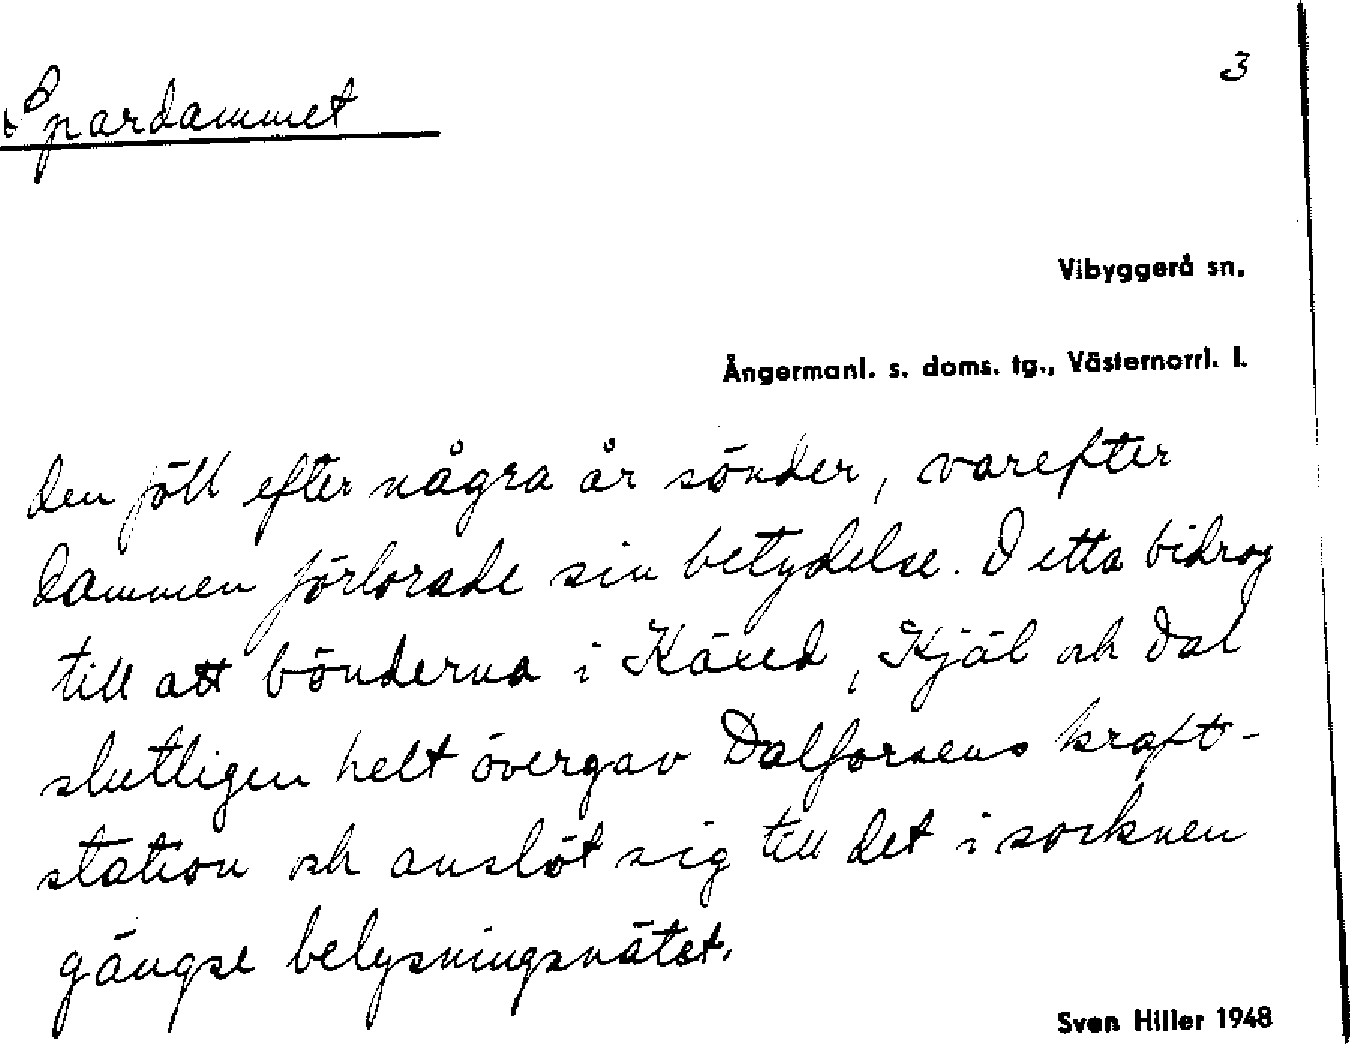 Spardammet
3
Vibyggerå sn.
Ångermanl. s. doms. tg., Västernorrl. l.
den föll efter några år sönder, varefter
dammen förlorade sin betydelse. Detta bidrog
till att bönderna i Käxed, Kjäl och Dal
slutligen helt övergav Dalforsens kraft-
station och anslöt sig till det i socknen
gängse belysningsnätet.
Sven Hiller 1948